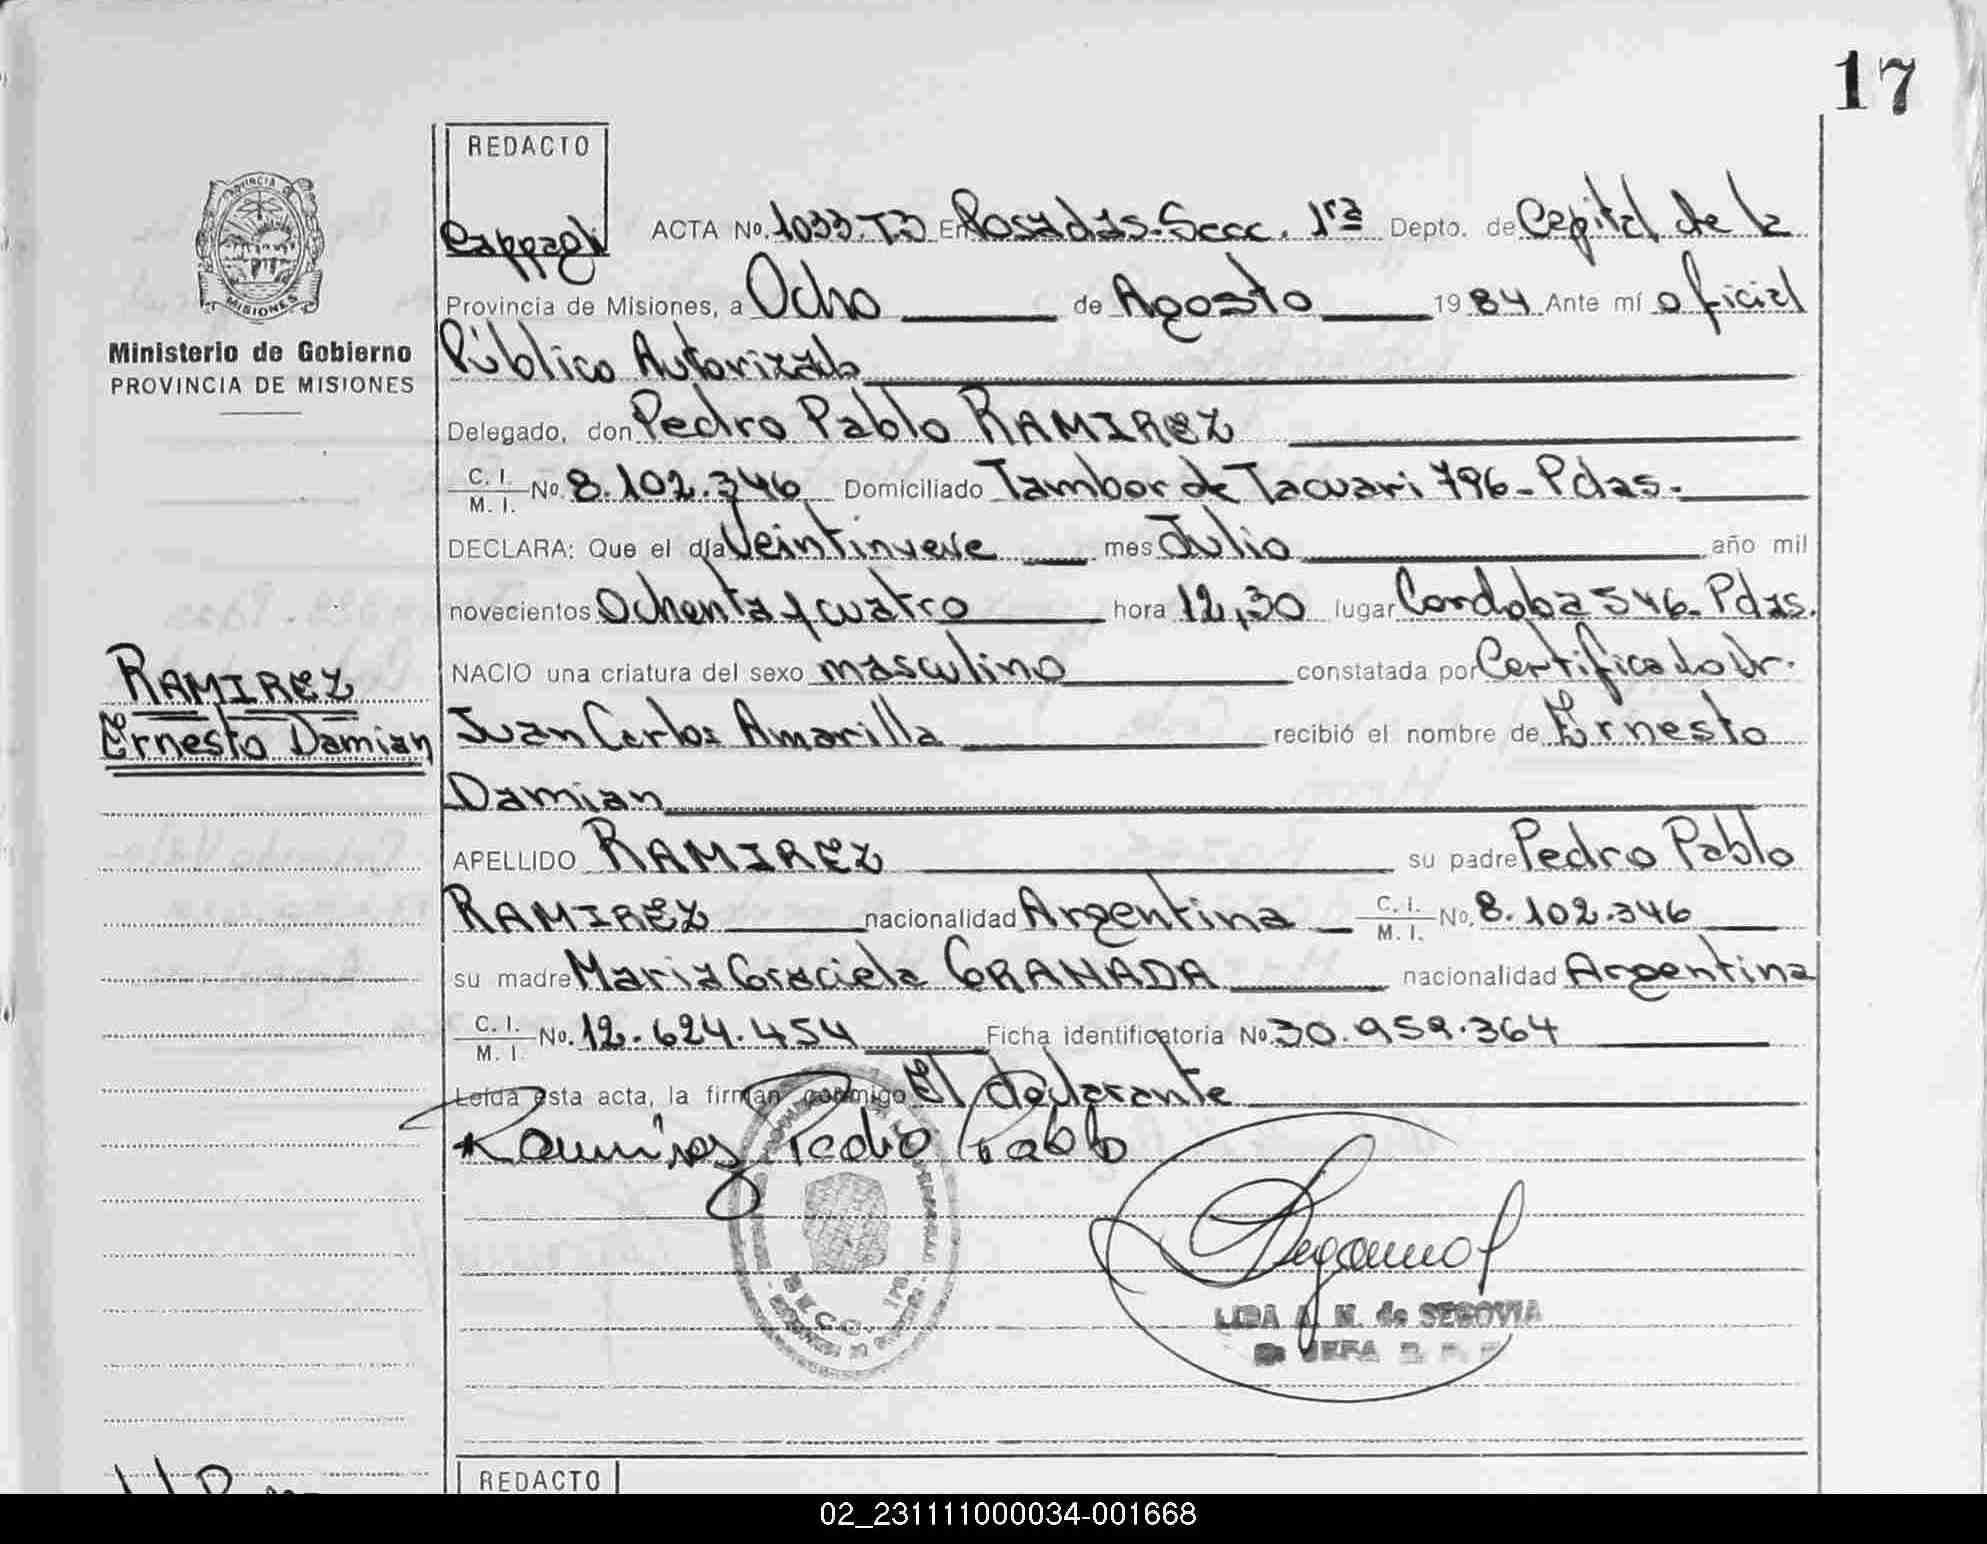 17
REDACTO
Cappagli
ACTA No. 1033-T3 En Posadas-Secc. 1ra Depto. de Capital de la
Provincia de Misiones, a Ocho de Agosto 1984 Ante mí oficial
Público Autorizado
Delegado, don Pedro Pablo RAMIREZ
C. I. / M. I. No. 8.102.346 Domiciliado Tambor de Tacuari 796- Pdas.-
DECLARA: Que el día Veintinueve mes Julio año mil
novecientos Ochenta y cuatro hora 12,30 lugar Cordoba 546- Pdas.
NACIO una criatura del sexo masculino constatada por Certificado Dr.
Juan Carlos Amarilla recibió el nombre de Ernesto
Damian
APELLIDO RAMIREZ su padre Pedro Pablo
RAMIREZ nacionalidad Argentina C. I. / M. I. No. 8.102.346
su madre Maria Graciela GRANADA nacionalidad Argentina
C. I. / M. I. No. 12.624.454 Ficha identificatoria No. 30.959.364
Leída esta acta, la firman conmigo El declarante
Ramirez Pedro Pablo
SECC. 1ra.
LIDA A. N. de SEGOVIA
REDACTO
MISIONES
Ministerio de Gobierno
PROVINCIA DE MISIONES
RAMIREZ
Ernesto Damian
02_231111000034-001668